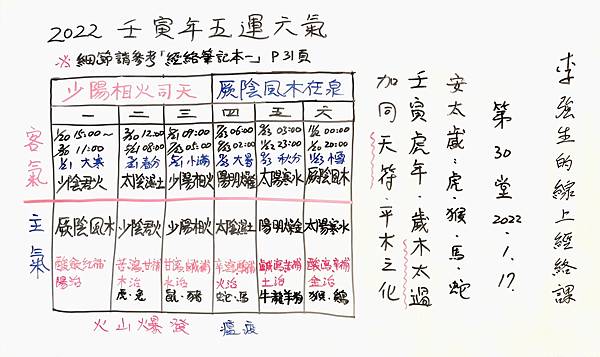 2022 壬寅年五運六氣
※細節請參考「經絡筆記本一」P31頁
少陽相火司天 厥陰風木在泉
一 二 三 四 五 六
客氣
1/20 15:00~ 3/20 12:00 5/21 09:00 7/23 05:00 9/23 03:00 11/22 00:00
3/20 11:00 5/21 08:00 23:00 20:00
1/21 大寒 3/21 春分 5/21 小滿 7/23 大暑 9/23 秋分
少陰君火 太陰濕土 少陽相火 陽明燥金 太陽寒水 厥陰風木
主氣
厥陰風木 少陰君火 少陽相火 太陰濕土 陽明燥金 太陽寒水
陽治 木治 水治 火治 土治 金治
虎.兔 鼠.豬 蛇.馬 牛龍羊狗 猴.鷄
火山爆發 瘟疫
李強生的線上經絡課
第30堂 2022.1.17.
安太歲.虎.猴.馬.蛇
壬寅虎年.歲木太過
加同天符.平木之化